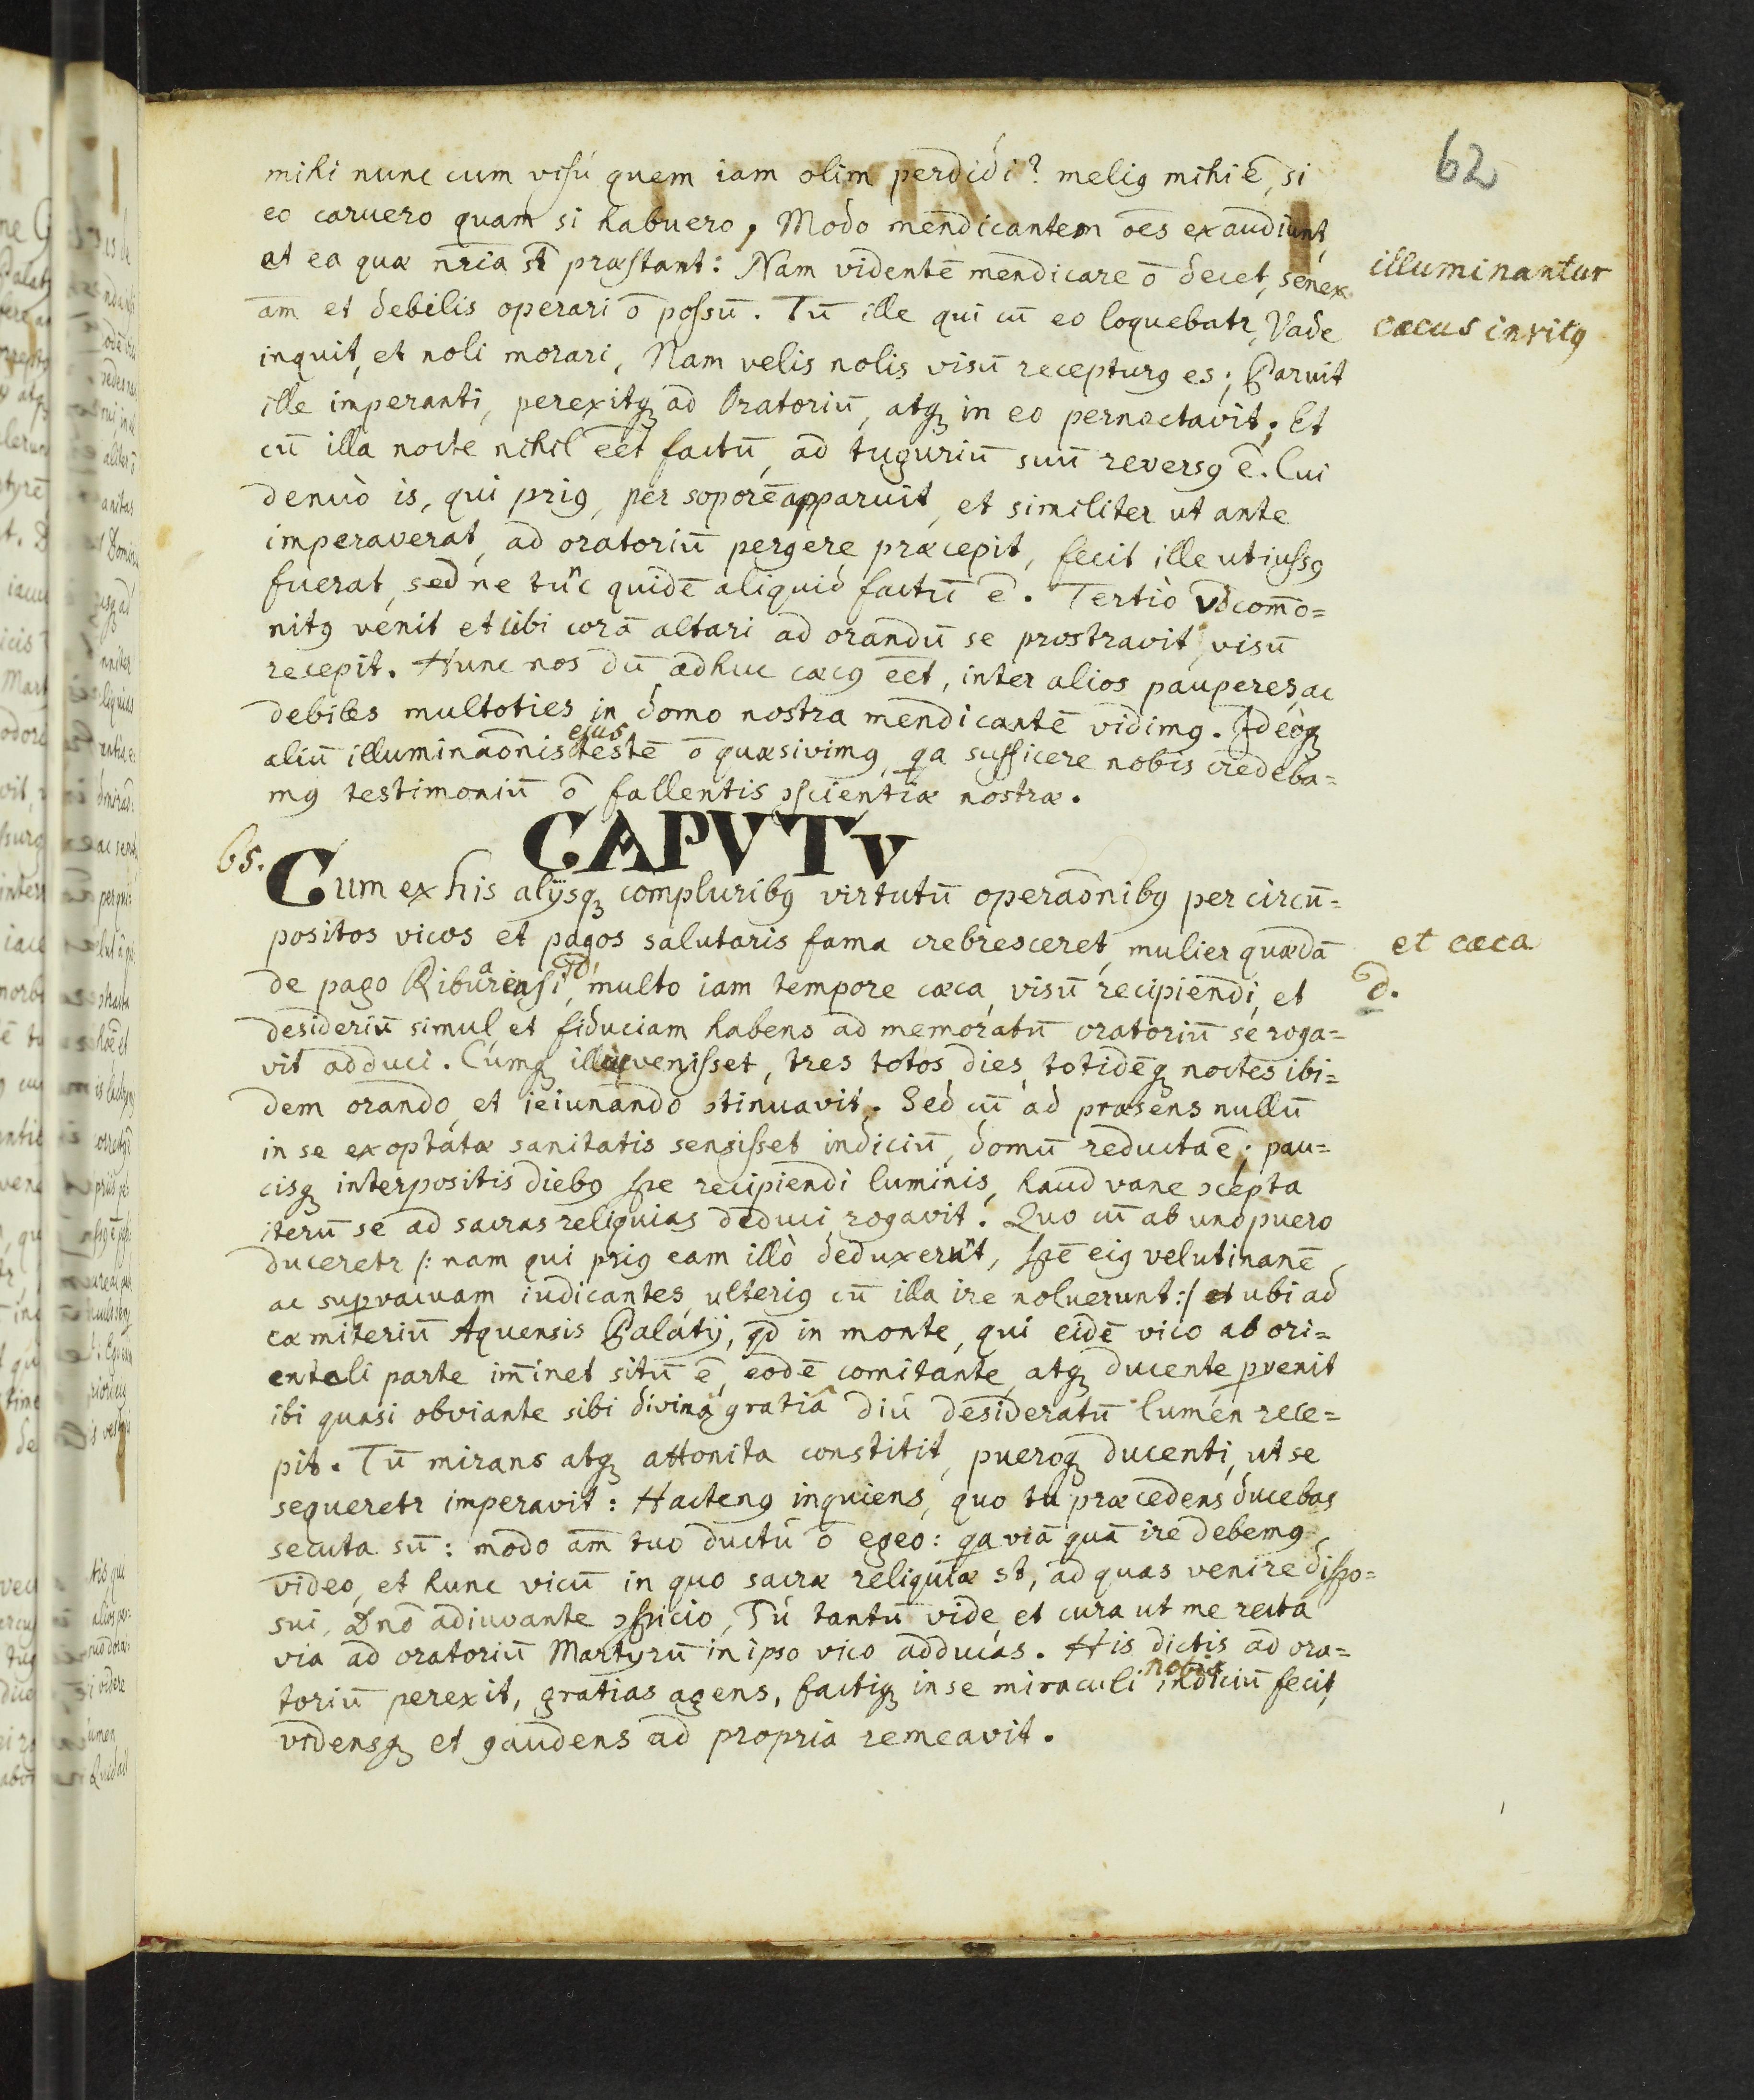 62
mihi nunc cum visú quem iam olim perdidi? meliꝰ mihi ē, si
eo caruero quam si habuero, Modo mendicantem oēs exaudiunt,
et ea quæ nr̄ia st̄ præstant: Nam videntē mendicare ō decet, senex
illuminantur
am̄ et debilis operari ō possū. Tū ille qui cū eo loquebatr, Vade
cæcus invitꝰ
inquit, et noli morari, Nam velis nolis visū recepturꝰ es; Paruit
ille imperanti, perexitqꝫ ad Oratoriū, atqꝫ in eo pernoctavit; Et
cū illa nocte nihil eēt factū, ad tuguriū suū reversꝰ ē. Cui
denuò is, qui priꝰ, per soporē apparuit, et similiter ut ante
imperaverat, ad oratoriū pergere præcepit, fecit ille ut iussꝰ
fuerat, sed ne tūc quidē aliquid factū ē. Tertiò vō com̄o=
nitꝰ venit et ubi corā altari ad orandū se prostravit, visū
recepit. Hunc nos dū adhuc cæcꝰ eēt, inter alios pauperes, ac
debiles multoties in domo nostra mendicantē vidimꝰ. Ideòqꝫ
aliū illuminaōnis ejus testē ō quæsivimꝰ, qa sufficere nobis credeba=
mꝰ testimoniū ō fallentis ↄscientiæ nostræ.
CAPVT V
65.
Cum ex his alijsqꝫ compluribꝰ virtutū operaōnibꝰ per circū=
positos vicos et pagos salutaris fama crebresceret, mulier quædā
et cæca
de pago Ribuariensi, multo iam tempore cæca, visū recipiendi, et
d.
desideriū simul, et fiduciam habens ad memoratū oratoriū se roga=
vit adduci. Cúmqꝫ illuc venisset, tres totos dies, totidēqꝫ noctes ibi=
dem orando, et ieiunando ↄtinuavit. Sed cū ad præsens nullū
in se exoptatæ sanitatis sensisset indiciū, domū reducta ē; pau=
cisqꝫ interpositis diebꝰ spe recipiendi luminis, haud vane ↄcepta
iterū se ad sacras reliquias deduci rogavit. Quo cū ab uno puero
duceretr /: nam qui priꝰ eam illò deduxerūt, spē eiꝰ velut inanē,
ac supvacuam iudicantes, ulteriꝰ cū illa ire noluerunt :/ et ubi ad
cæmiteriū Aquensis Palatij, qd̄ in monte, qui eidē vico ab ori=
entali parte im̄inet situ̅ ē, eodē comitante, atqꝫ ducente pvenit
ibi quasi obviante sibi divinâ gratiâ diú desideratū lumen rece=
pit. Tū mirans atqꝫ attonita constitit, pueroqꝫ ducenti, ut se
sequeretr imperavit: Hactenꝰ inquiens, quo tu præcedens ducebas
secuta sū: modo am̄ tuo ductú ō egeo: qa viā quā ire debemꝰ,
video, et hunc vicū in quo sacræ reliquiæ st, ad quas venire dispo=
sui, Dnō adiuvante ↄspicio, Tú tantū vide, et cura ut me recta
via ad oratoriū Martyrū in ipso vico adducas. His dictis ad ora=
toriū perexit, gratias agens, factiqꝫ in se miraculi nobis indiciū fecit,
vidensqꝫ et gaudens ad propria remeavit.